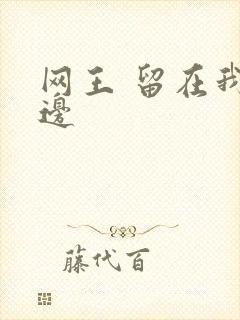 网王 留在我
邊
藤代百